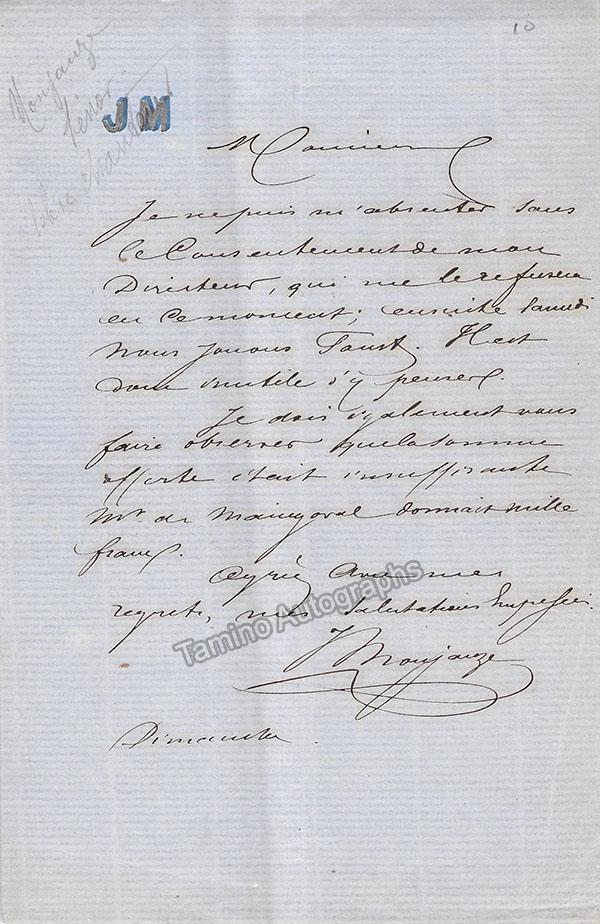 10
Monjauze
Ténor
JM
Monsieur
Je ne puis m'absenter sans
le Consentement de mon
Directeur, qui me le refusera
en ce moment; ensuite Samedi
nous jouons Faust. Il est
donc inutile d'y penser.
Je dois également vous
faire observer que la somme
offerte était insuffisante
Mr. de Maingoval donnait mille
francs.
Agréez Avec mes
regrets, mes Salutations Empressées.
J Monjauze
Tamino Autographs
Dimanche.